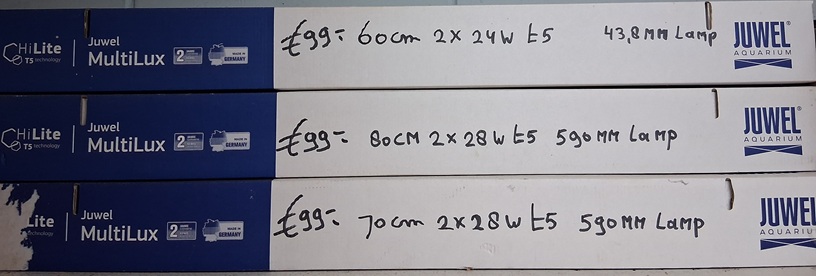 HiLite T5 technology Juwel MultiLux 2 MADE IN GERMANY £99- 60cm 2x24W t5 43,8MM Lamp JUWEL® AQUARIUM
HiLite T5 technology Juwel MultiLux 2 MADE IN GERMANY £99- 80cm 2x28W t5 590MM Lamp JUWEL® AQUARIUM
Lite technology Juwel MultiLux 2 MADE IN GERMANY £99- 70cm 2x28W t5 590MM Lamp JUWEL AQUARIU